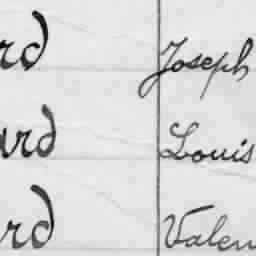 rd Joseph
ard Louis
rd Valen